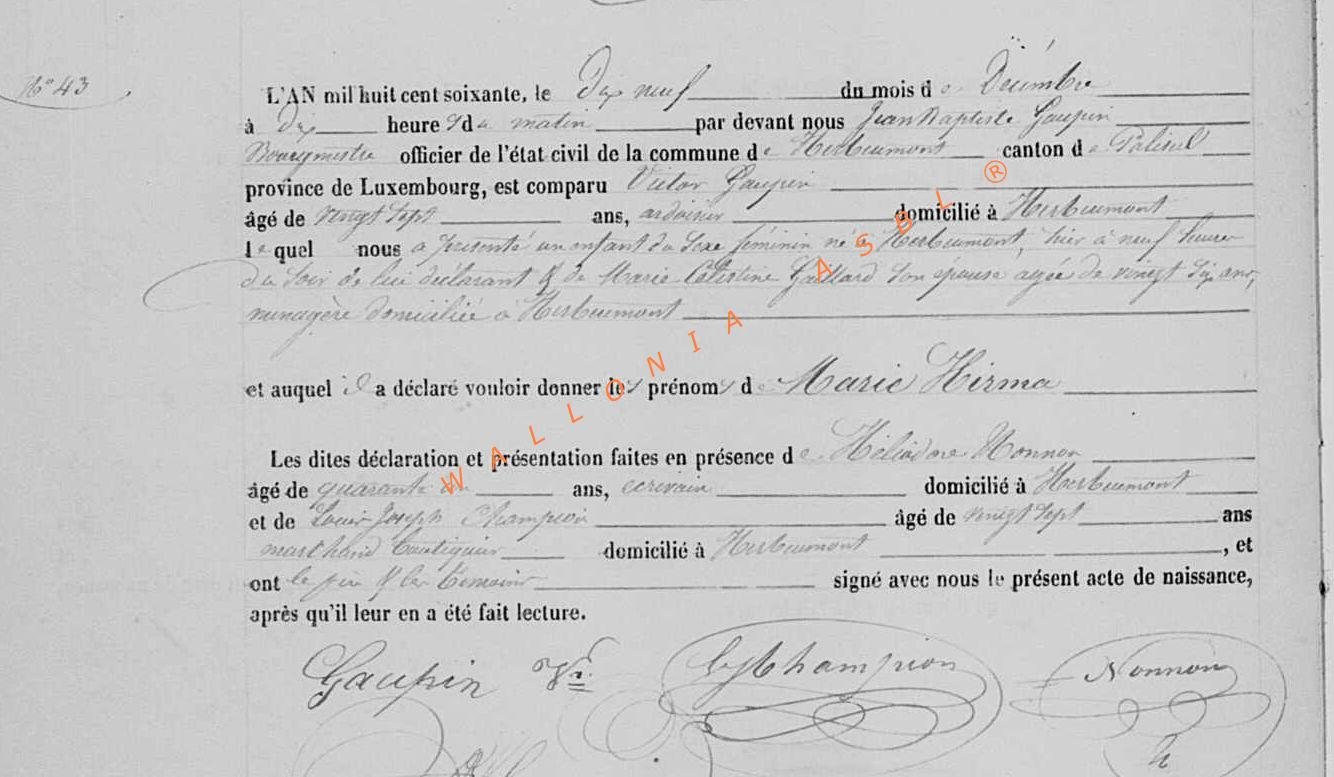 N° 43
L'AN mil huit cent soixante, le Dix neuf du mois de Décembre
à Dix heures du matin par devant nous Jean Baptiste Gaupin
Bourgmestre officier de l'état civil de la commune de Herbeumont canton de Paliseul
province de Luxembourg, est comparu Victor Gaupin
âgé de vingt sept ans, ardoisier domicilié à Herbeumont
lequel nous a présenté un enfant du sexe féminin né à Herbeumont, hier à neuf heures
du soir de lui déclarant & de Marie Célestine Gaillard son épouse agée de vingt six ans,
ménagère domiciliée à Herbeumont
et auquel il a déclaré vouloir donner les prénoms de Marie Hirma
Les dites déclaration et présentation faites en présence de Héliodore Nonnon
âgé de quarante ans, écrivain domicilié à Herbeumont
et de Louis Joseph Champion âgé de vingt sept ans
marchand boutiquier domicilié à Herbeumont, et
ont le père & les témoins signé avec nous le présent acte de naissance,
après qu'il leur en a été fait lecture.
Gaupin Vr. Champion Nonnon
WALLONIA ASBL ®